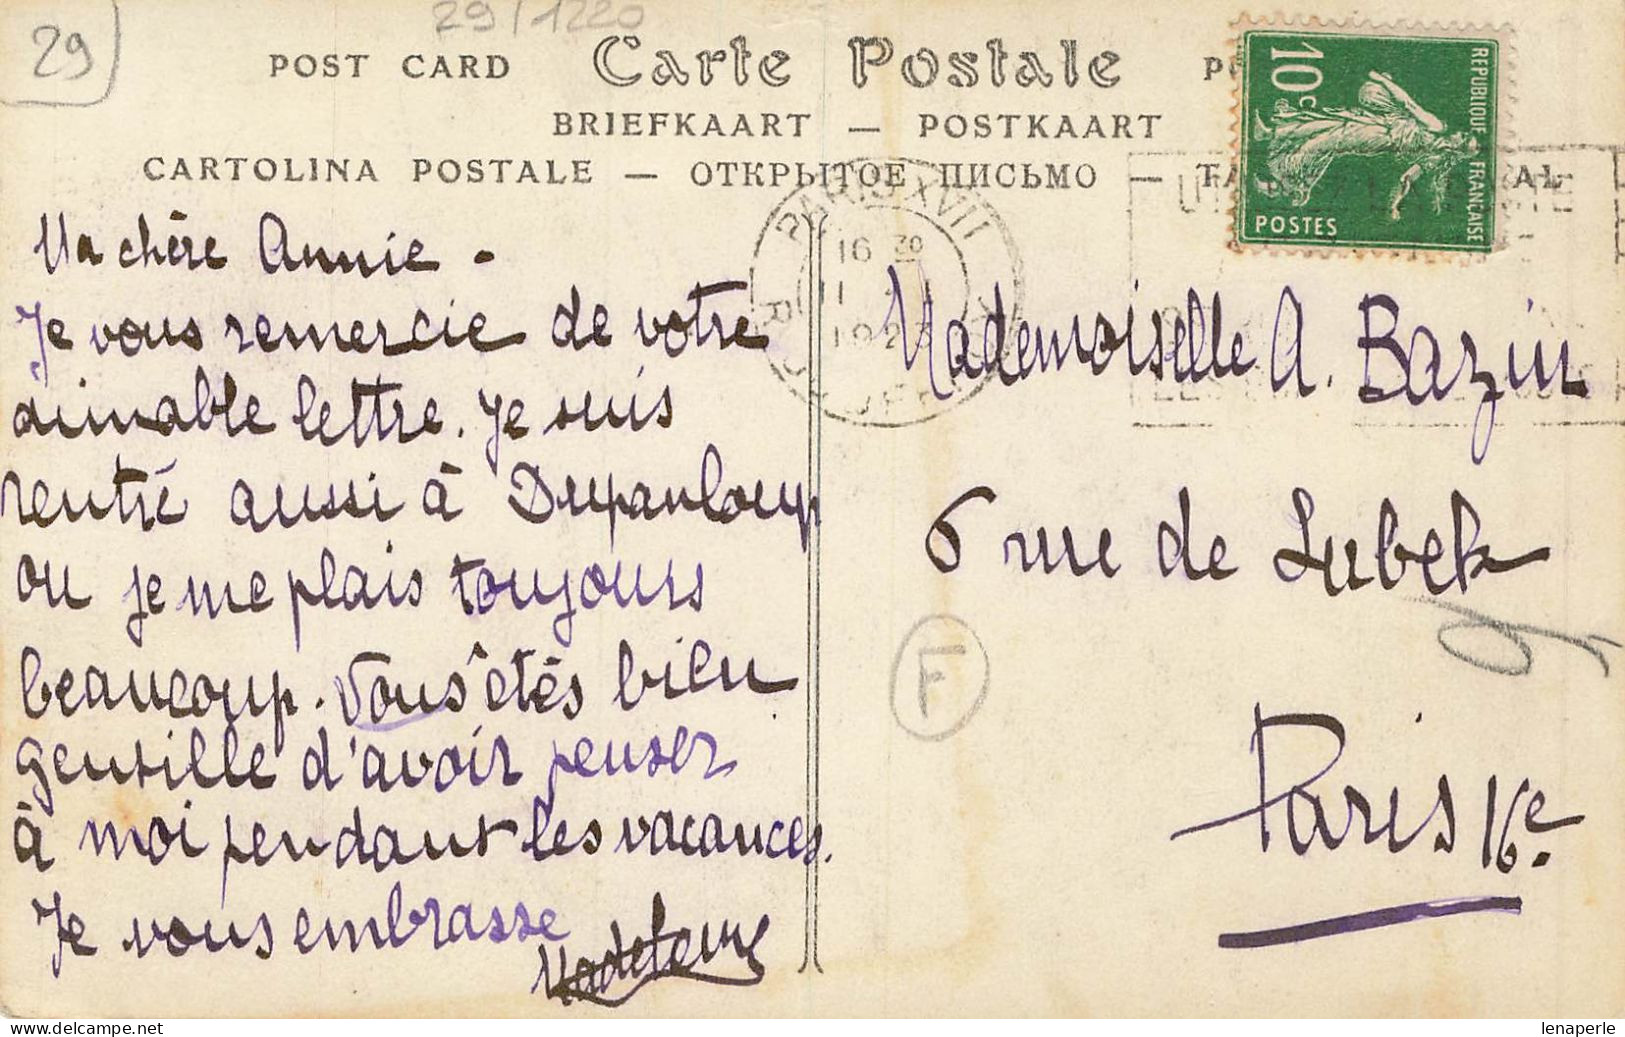 29
29/1220
POST CARD Carte Postale
BRIEFKAART — POSTKAART
CARTOLINA POSTALE — ОТКРЫТОЕ ПИСЬМО —
REPUBLIQUE FRANÇAISE
10c
POSTES
PARIS XVII
16 30
11
1923
Ma chère Annie -
Je vous remercie de votre
aimable lettre. Je suis
rentré aussi à Dupanloup
ou je me plais toujours
beaucoup. Vous êtes bien
gentille d'avoir penser
à moi pendant les vacances.
Je vous embrasse
Mademoiselle A. Bazin
6 rue de Lubek
F
Paris 16e.
lenaperle